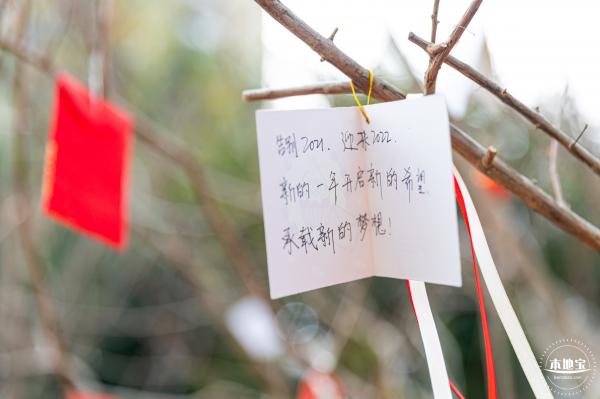 告别2021. 迎来2022.
新的一年开启新的希望
承载新的梦想!
本地宝